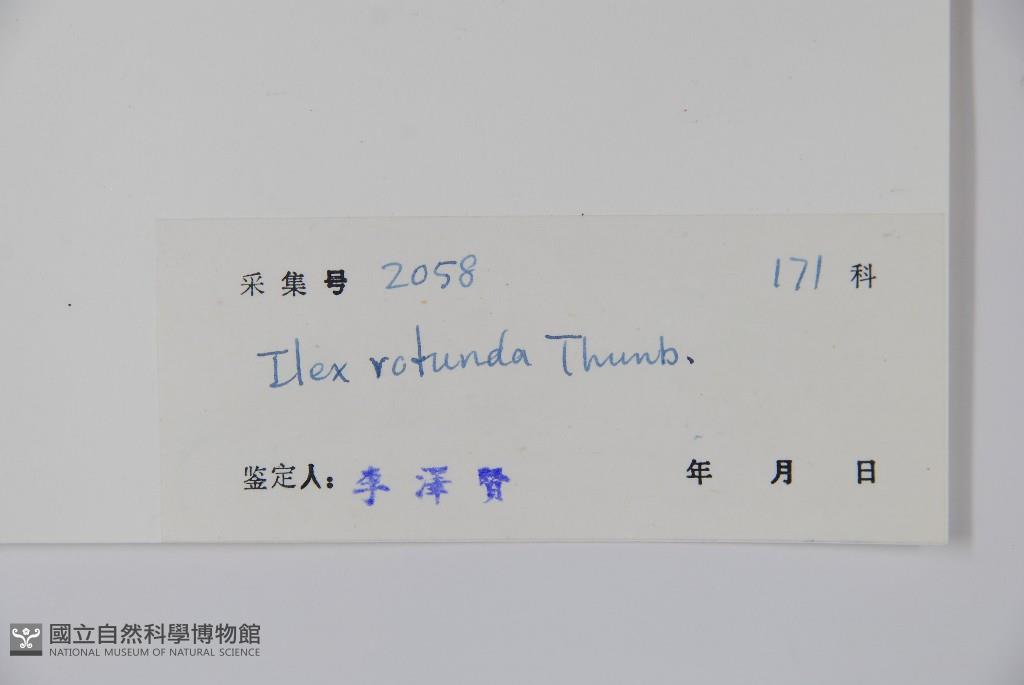 采集号 2058 171 科
Ilex rotunda Thunb.
鉴定人: 李澤賢 年 月 日
國立自然科學博物館
NATIONAL MUSEUM OF NATURAL SCIENCE